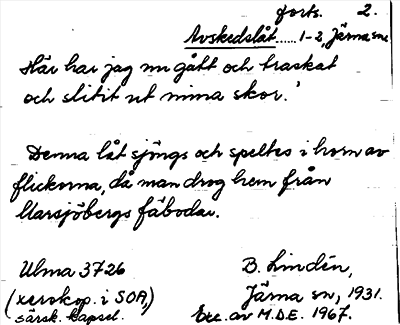 forts. 2.
Avskedslåt......1-2, Järna sn.
Här har jag nu gått och traskat
och slitit ut mina skor.'
Denna låt sjöngs och speltes i horn av
flickorna, då man drog hem från
Marsjöbergs fäbodar.
Ulma 3726 B. Lindén,
(xerokop. i SOA,) Järna sn, 1931.
särsk. kapsel. Exc. av M.D.E. 1967.